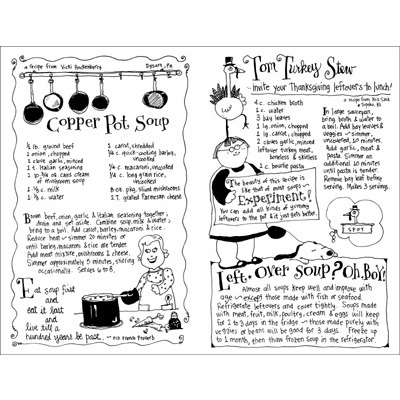 a recipe from Vicki Hockenberry
Dysart, PA
Copper Pot Soup
1/2 lb. ground beef
1 onion, chopped
1 clove garlic, minced
1 t. Italian seasoning
2 10 3/4 oz. cans cream
of mushroom soup
1 1/2 c. milk
3/4 c. water
1 carrot, shredded
1/4 c. quick-cooking barley,
uncooked
1/4 c. macaroni, uncooked
1/4 c. long grain rice,
uncooked
8-oz. pkg. sliced mushrooms
1 T. grated Parmesan cheese
Brown beef, onion, garlic & Italian seasoning together;
drain and set aside. Combine soup, milk & water;
bring to a boil. Add carrot, barley, macaroni & rice.
Reduce heat ~ simmer 20 minutes or
until barley, macaroni & rice are tender.
Add meat mixture, mushrooms & cheese.
Simmer approximately 5 minutes, stirring
occasionally. Serves 6 to 8.
Eat soup first
and
eat it last
and
live till a
hundred years be past.
~ Old French Proverb
6
Tom Turkey Stew
Invite your Thanksgiving leftovers to lunch!
a recipe from Kris
4 c. chicken broth
1 c. water
3 bay leaves
1 onion, chopped
1 carrot, chopped
2 cloves garlic, minced
leftover turkey meat,
boneless & skinless
2 c. bowtie pasta
In large saucepan,
bring broth & water to
a boil. Add bay leaves &
veggies ~ simmer,
uncovered, 10 minutes.
Add garlic, meat &
pasta. Simmer an
additional 10 minutes
until pasta is tender.
Remove bay leaf before
serving. Makes 3 servings.
The beauty of this recipe is
like that of most soups ~
Experiment!
You can add all kinds of yummy
leftovers to the pot & it just gets better.
SPOT
Left-Over Soup? Oh, Boy!
Almost all soups keep well and improve with
age ~ except those made with fish or seafood.
Refrigerate leftovers and cover tightly. Soups made
with meat, fruit, milk, poultry, cream & eggs will keep
for 2 to 3 days in the fridge ~ those made purely with
veggies or beans will be good for 3 days. Freeze up
to 1 month, then thaw frozen soup in the refrigerator.